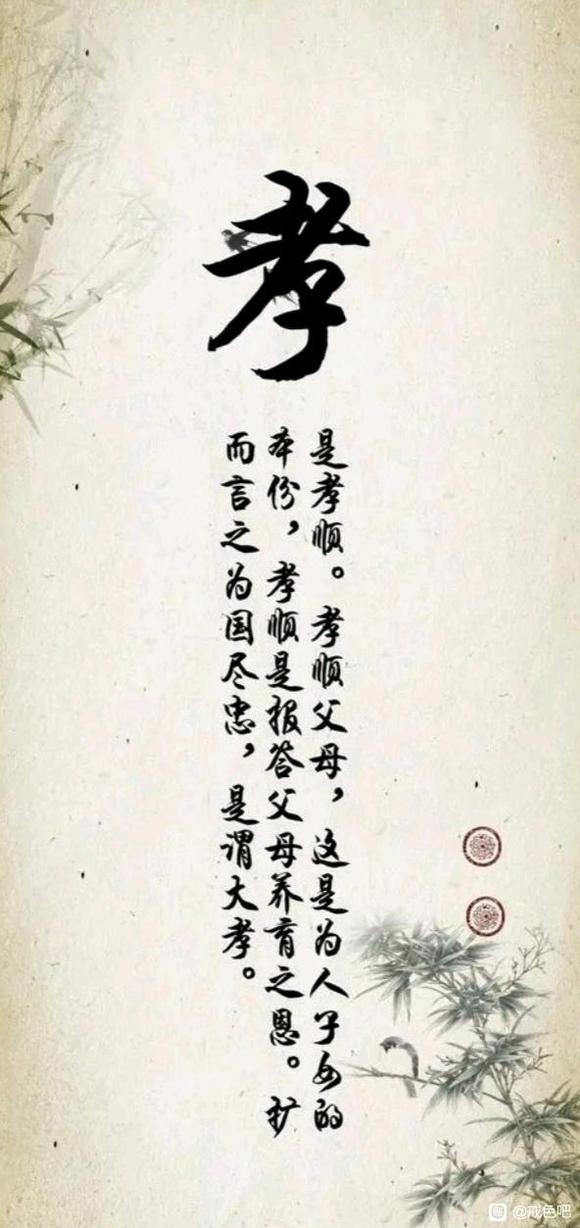 孝
是孝顺。孝顺父母，这是为人子女的
本份，孝顺是报答父母养育之恩。扩
而言之为国尽忠，是谓大孝。
@戒色吧